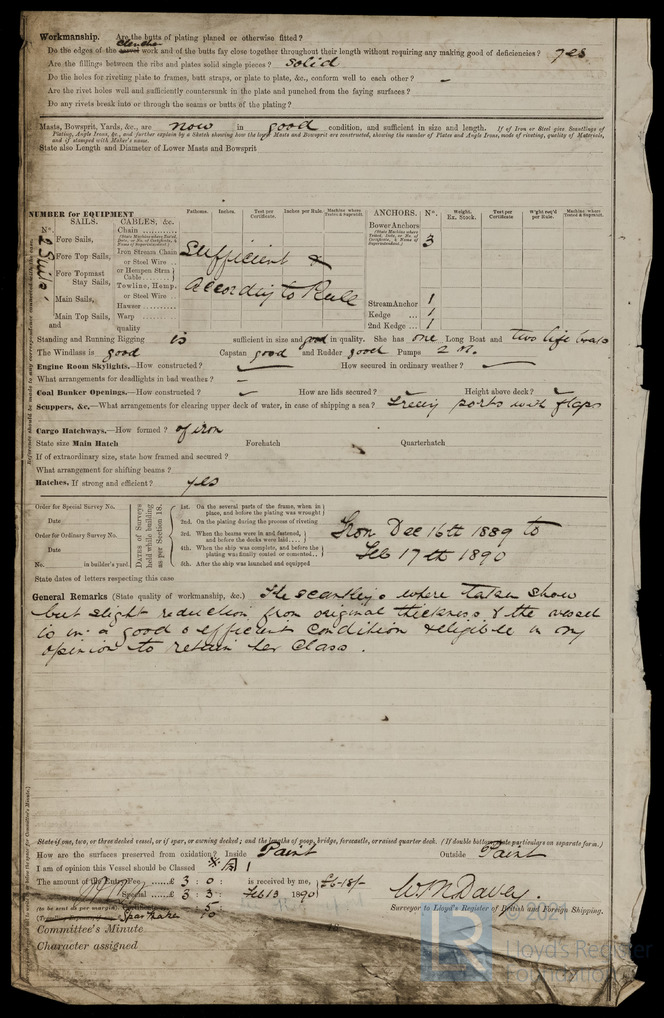 Workmanship. Are the butts of plating planed or otherwise fitted?
clencher
Do the edges of the carvel work and of the butts fay close together throughout their length without requiring any making good of deficiencies? yes
Are the fillings between the ribs and plates solid single pieces? solid
Do the holes for riveting plate to frames, butt straps, or plate to plate, &c., conform well to each other? -
Are the rivet holes well and sufficiently countersunk in the plate and punched from the faying surfaces?
Do any rivets break into or through the seams or butts of the plating?
Masts, Bowsprit, Yards, &c., are now in good condition, and sufficient in size and length. If of Iron or Steel give Scantlings of
Plating, Angle Irons, &c., and further explain by a Sketch showing how the lower Masts and Bowsprit are constructed, showing the number of Plates and Angle Irons, mode of riveting, quality of Materials,
and if stamped with Maker's name.
State also Length and Diameter of Lower Masts and Bowsprit
NUMBER for EQUIPMENT
Fathoms. Inches. Test per Certificate. Inches per Rule. Machine where Tested & Superintd.
ANCHORS. Nos. Weight. Ex. Stock. Test per Certificate. W'ght req'd per Rule. Machine where Tested & Superintd.
No. SAILS. CABLES, &c.
Chain
Bower Anchors 3
Fore Sails, Iron Stream Chain
or Steel Wire
Fore Top Sails, or Hempen Strm Cable
Sufficient
Fore Topmast Stay Sails, Towline, Hemp.
According to Rule
or Steel Wire
Main Sails, Hawser
Stream Anchor 1
Main Top Sails, Warp
Kedge 1
and quality
2nd Kedge 1
Standing and Running Rigging is sufficient in size and good in quality. She has one Long Boat and two life boats
The Windlass is good Capstan good and Rudder good Pumps 2
Engine Room Skylights.—How constructed? How secured in ordinary weather?
What arrangements for deadlights in bad weather?
Coal Bunker Openings.—How constructed? How are lids secured? Height above deck?
Scuppers, &c.—What arrangements for clearing upper deck of water, in case of shipping a sea? Freeing ports with flaps
Cargo Hatchways.—How formed? of iron
State size Main Hatch Forehatch Quarterhatch
If of extraordinary size, state how framed and secured?
What arrangement for shifting beams?
Hatches. If strong and efficient? yes
Order for Special Survey No.
Date
Order for Ordinary Survey No.
Date
No. in builder's yard.
DATES of Surveys held while building as per Section 18.
1st. On the several parts of the frame, when in place, and before the plating was wrought
2nd. On the plating during the process of riveting
3rd. When the beams were in and fastened, and before the decks were laid
4th. When the ship was complete, and before the plating was finally coated or cemented
5th. After the ship was launched and equipped
From Dec 16th 1889 to
Feb 17th 1890
State dates of letters respecting this case
General Remarks (State quality of workmanship, &c.) The scantlings where taken show
but slight reduction from original thickness & the vessel
is in a good & efficient condition & eligible in my
opinion to retain her class.
State if one, two, or three decked vessel, or if spar, or awning decked; and the lengths of poop, bridge, forecastle, or raised quarter deck. (If double bottom, state particulars on separate form.)
How are the surfaces preserved from oxidation? Inside Paint Outside Paint
I am of opinion this Vessel should be Classed
The amount of the Entry Fee £ 3 : 0 : is received by me,
Special £ 3 : 3 : Feb 13 1890
W. N. Davey.
Surveyor to Lloyd's Register of British and Foreign Shipping.
Committee's Minute
Character assigned
© 2021
LR
Lloyd's Register
Foundation